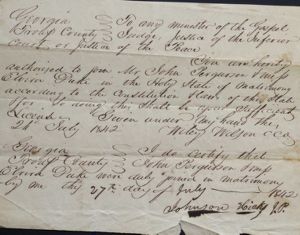 Georgia } To any minister of the Gospel
Troup County } Judge, Justice of the Inferior
Court or Justice of the Peace
You are hereby
authorised to join Mr John Ferguson & Miss
Duke in the Holy State of Matrimony
according to the Constitution & Laws of this State
for so doing this Shall be your Sufficient
License Given under my hand this
July 1842 Wilson CCO
Georgia } I do certify that
Troup County } John Ferguson & Miss
Duke were duly joined in matrimony
by me this 27th day of July 1842
Johnson Hicks J.P.